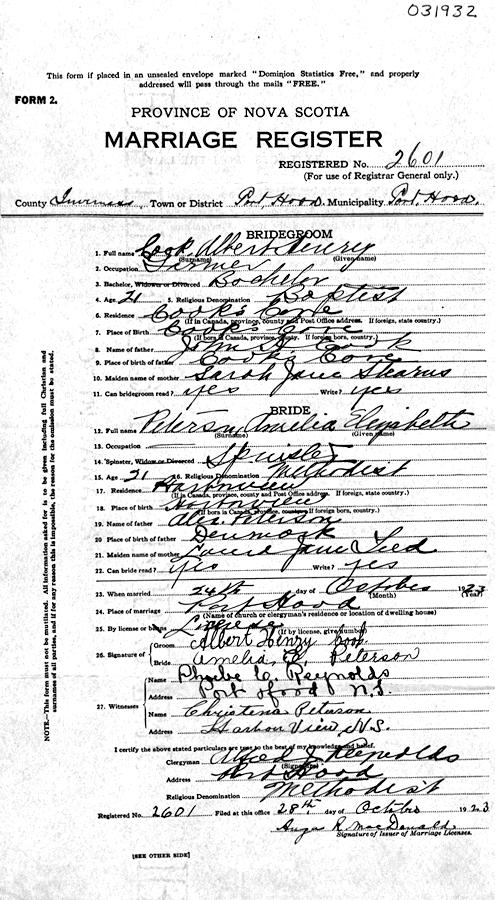 031932
This form if placed in an unsealed envelope marked "Dominion Statistics Free," and properly
addressed will pass through the mails "FREE."
FORM 2.
PROVINCE OF NOVA SCOTIA
MARRIAGE REGISTER
REGISTERED No. 2601
(For use of Registrar General only.)
County Inverness, Town or District Port Hood. Municipality Port Hood.
BRIDEGROOM
1. Full name Cook Albert Henry
(Surname) (Given name)
2. Occupation Farmer
3. Bachelor, Widower or Divorced Bachelor
4. Age 21 5. Religious Denomination Baptist
6. Residence Cook's Cove
(If in Canada, province, county and Post Office address. If foreign, state country)
7. Place of Birth Cook's Cove
(If born in Canada, province, county. If foreign born, country)
8. Name of father John W. Cook
9. Place of birth of father Cook's Cove
10. Maiden name of mother Sarah Jane Stearns
11. Can bridegroom read? yes Write? yes
BRIDE
12. Full name Peterson, Amelia Elizabeth
(Surname) (Given name)
13. Occupation
14. Spinster, Widow or Divorced Spinster
15. Age 21 16. Religious Denomination Methodist
17. Residence Harborview
(If in Canada, province, county and Post Office address. If foreign, state country)
18. Place of birth Harborview
(If born in Canada, province, county. If foreign born, country)
19. Name of father Alex Peterson
20. Place of birth of father Denmark
21. Maiden name of mother Laura Jane
22. Can bride read? yes Write? yes
23. When married 24th day of October 1923
(Month) (Year)
24. Place of marriage Port Hood
(Name of church or clergyman's residence or location of dwelling house)
25. By license or banns License
(If by license, give number)
26. Signature of Groom Albert Henry Cook
Bride Amelia E. Peterson
27. Witnesses Name Phoebe C. Reynolds
Address Port Hood N.S.
Name Christena Peterson
Address Harbor View, N.S.
I certify the above stated particulars are true to the best of my knowledge and belief.
Clergyman Alfred J. Reynolds
(Signature)
Address Port Hood
Religious Denomination Methodist
Registered No. 2601 Filed at this office 28th day of October 1923
Angus R. MacDonald
Signature of Issuer of Marriage Licenses.
[SEE OTHER SIDE]
NOTE.—This form must not be mutilated. All information asked for is to be given including full Christian and
surnames of all parties, and if for any reason this is impossible, the reason for the omission must be stated.